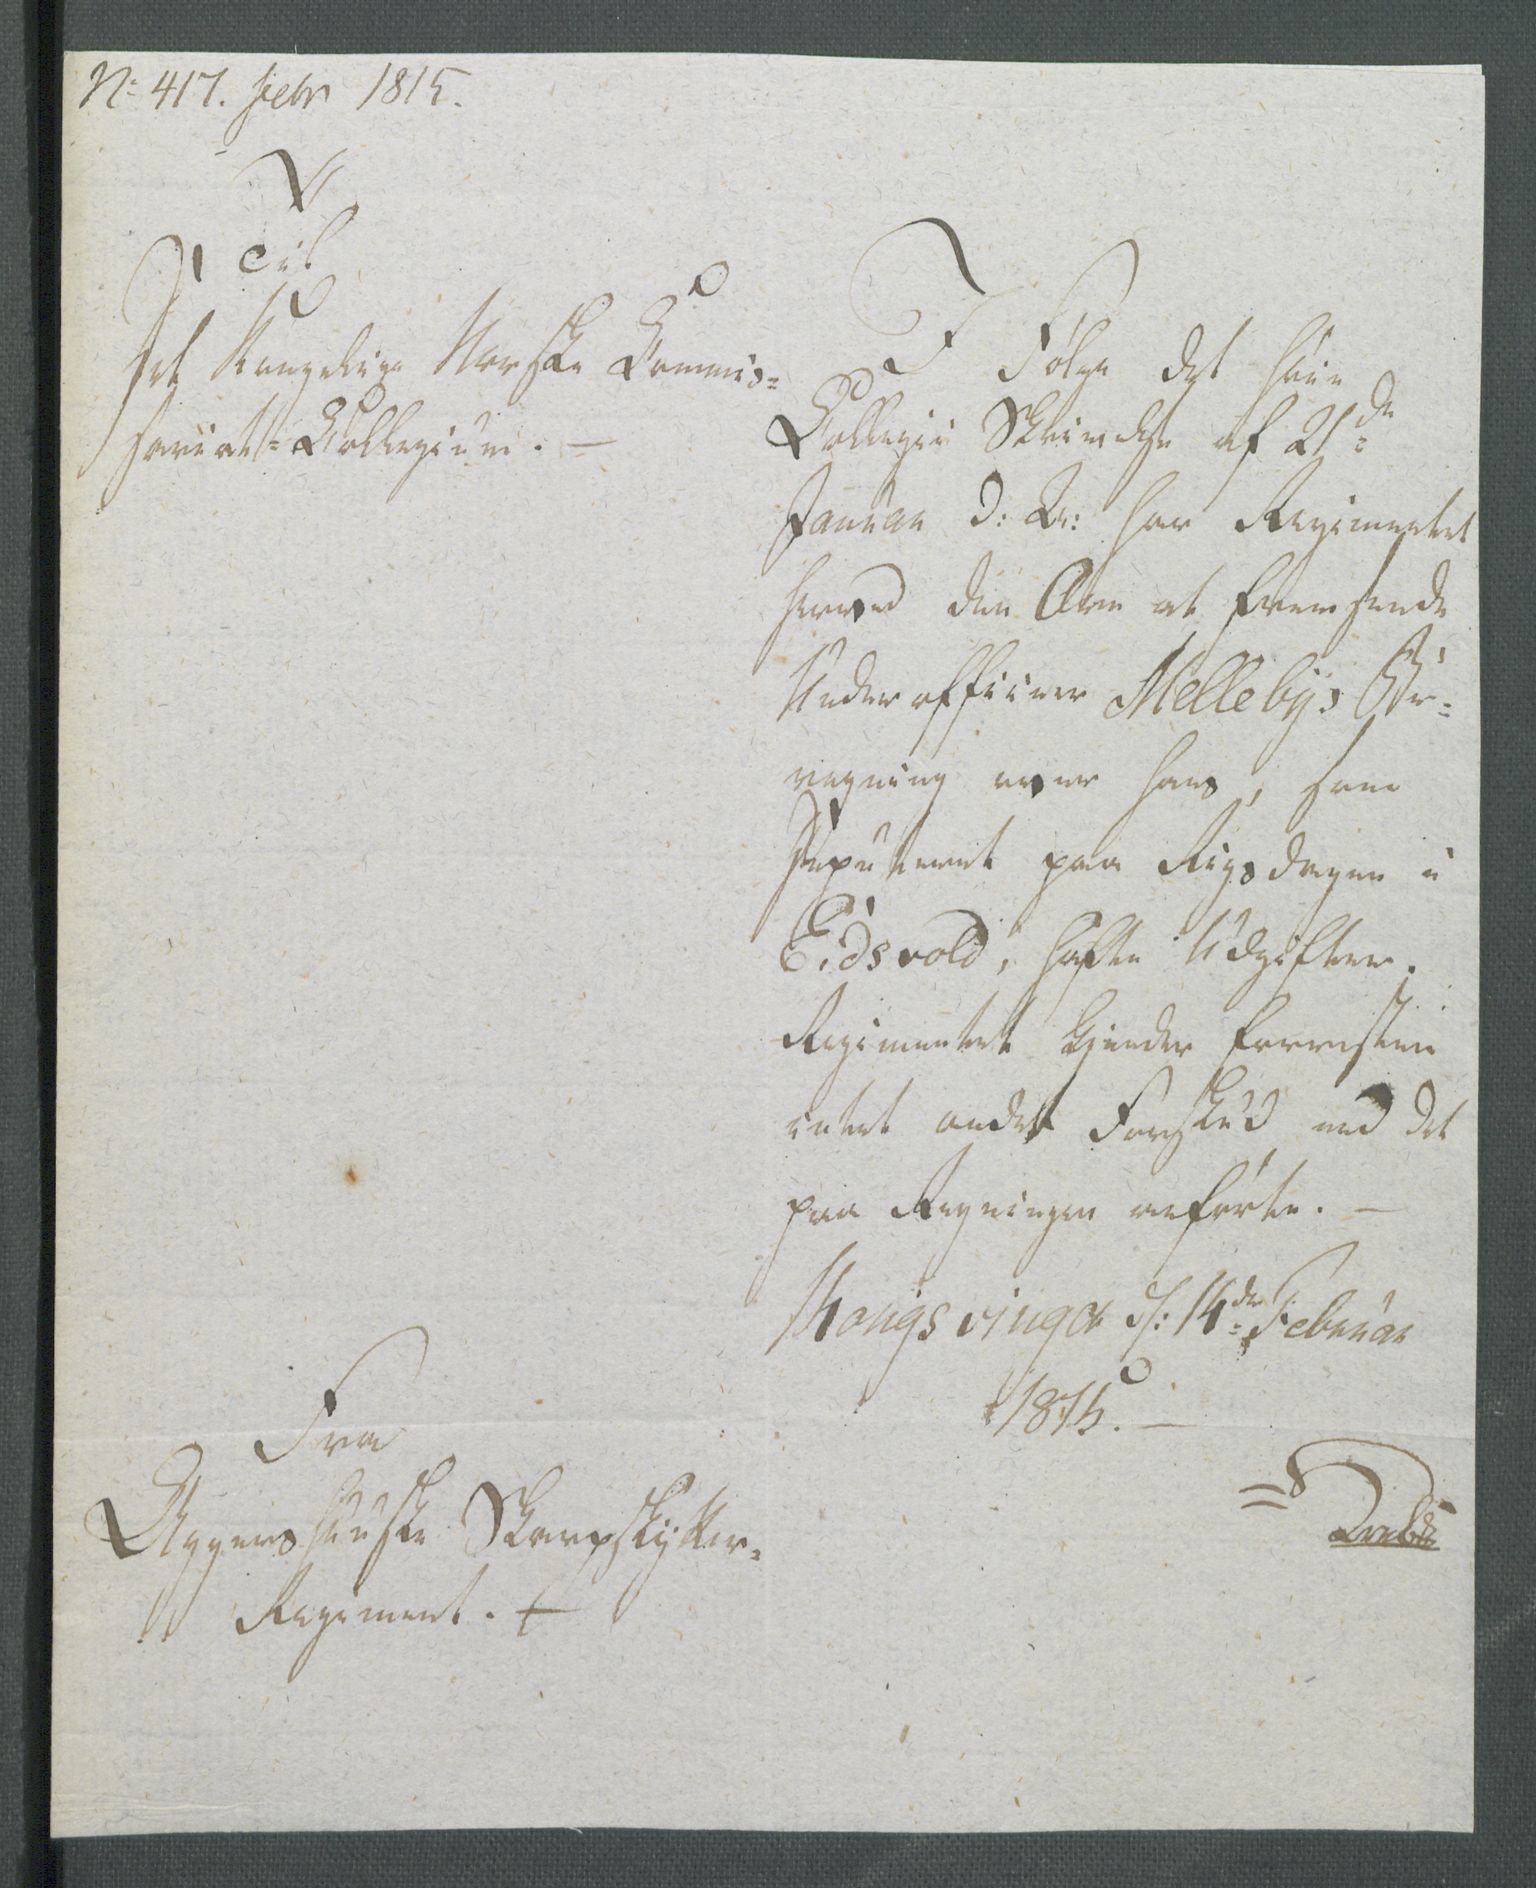 No 417. Febr 1815.
Til
Det Kongelige Norske Commis=
sariat=Collegium. —
I Følge det høie
Collegii Skrivelse af 21de
Januar d: A: har Regimentet
herved den Ære at fremsende
Underofficeer Mellebÿs
regning over hans, som
Deputeret paa Rigsdagen i
Eidsvold, hafte Udgifter.
Regimentet kjender forresten
intet andet Forskud end det
paa Regningen anførte. —
Kongsvinger d: 14de Februar
1815. —
Fra
Aggershuuske Skarpskÿtter=
Regiment. —